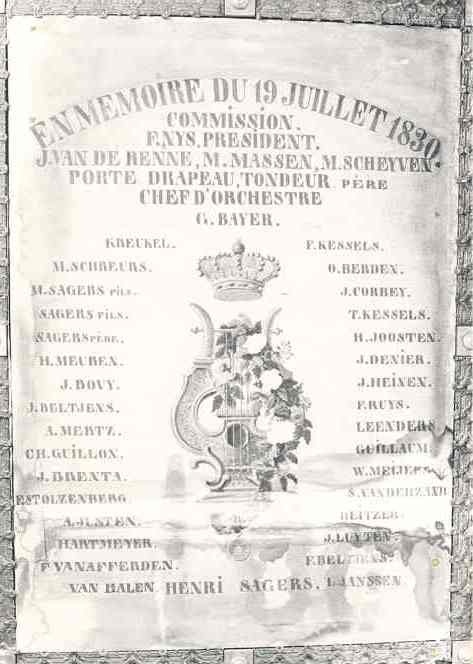 EN MEMOIRE DU 19 JUILLET 1830.
COMMISSION.
F.NYS, PRESIDENT.
J. VAN DE RENNE, M. MASSEN, M. SCHEYVEN.
PORTE DRAPEAU, TONDEUR PÈRE
CHEF D'ORCHESTRE
G. BAYER.
KREUKEL. F. KESSELS.
M. SCHREURS. O. BERDEN.
M. SAGERS FILS. J. CORBEY.
SAGERS FILS. T. KESSELS.
SAGERS PÈRE. H. JOOSTEN.
H. MEUREN. J. DENIER.
J. BOUY. J. HEINEN.
J. BELTJENS. F. RUYS.
A. MERTZ. LEENDERS.
CH. GUILLON. GUILLAUM.
J. BRENTA. W. MEIJERS.
ESTOLZENBERG S. VANDERZAND
A. JUSTEN. REITZER.
HARTMEYER. J. LUYTEN.
F VANAFFERDEN. F. BELTJENS.
VAN BALEN HENRI SAGERS. L. JANSSEN